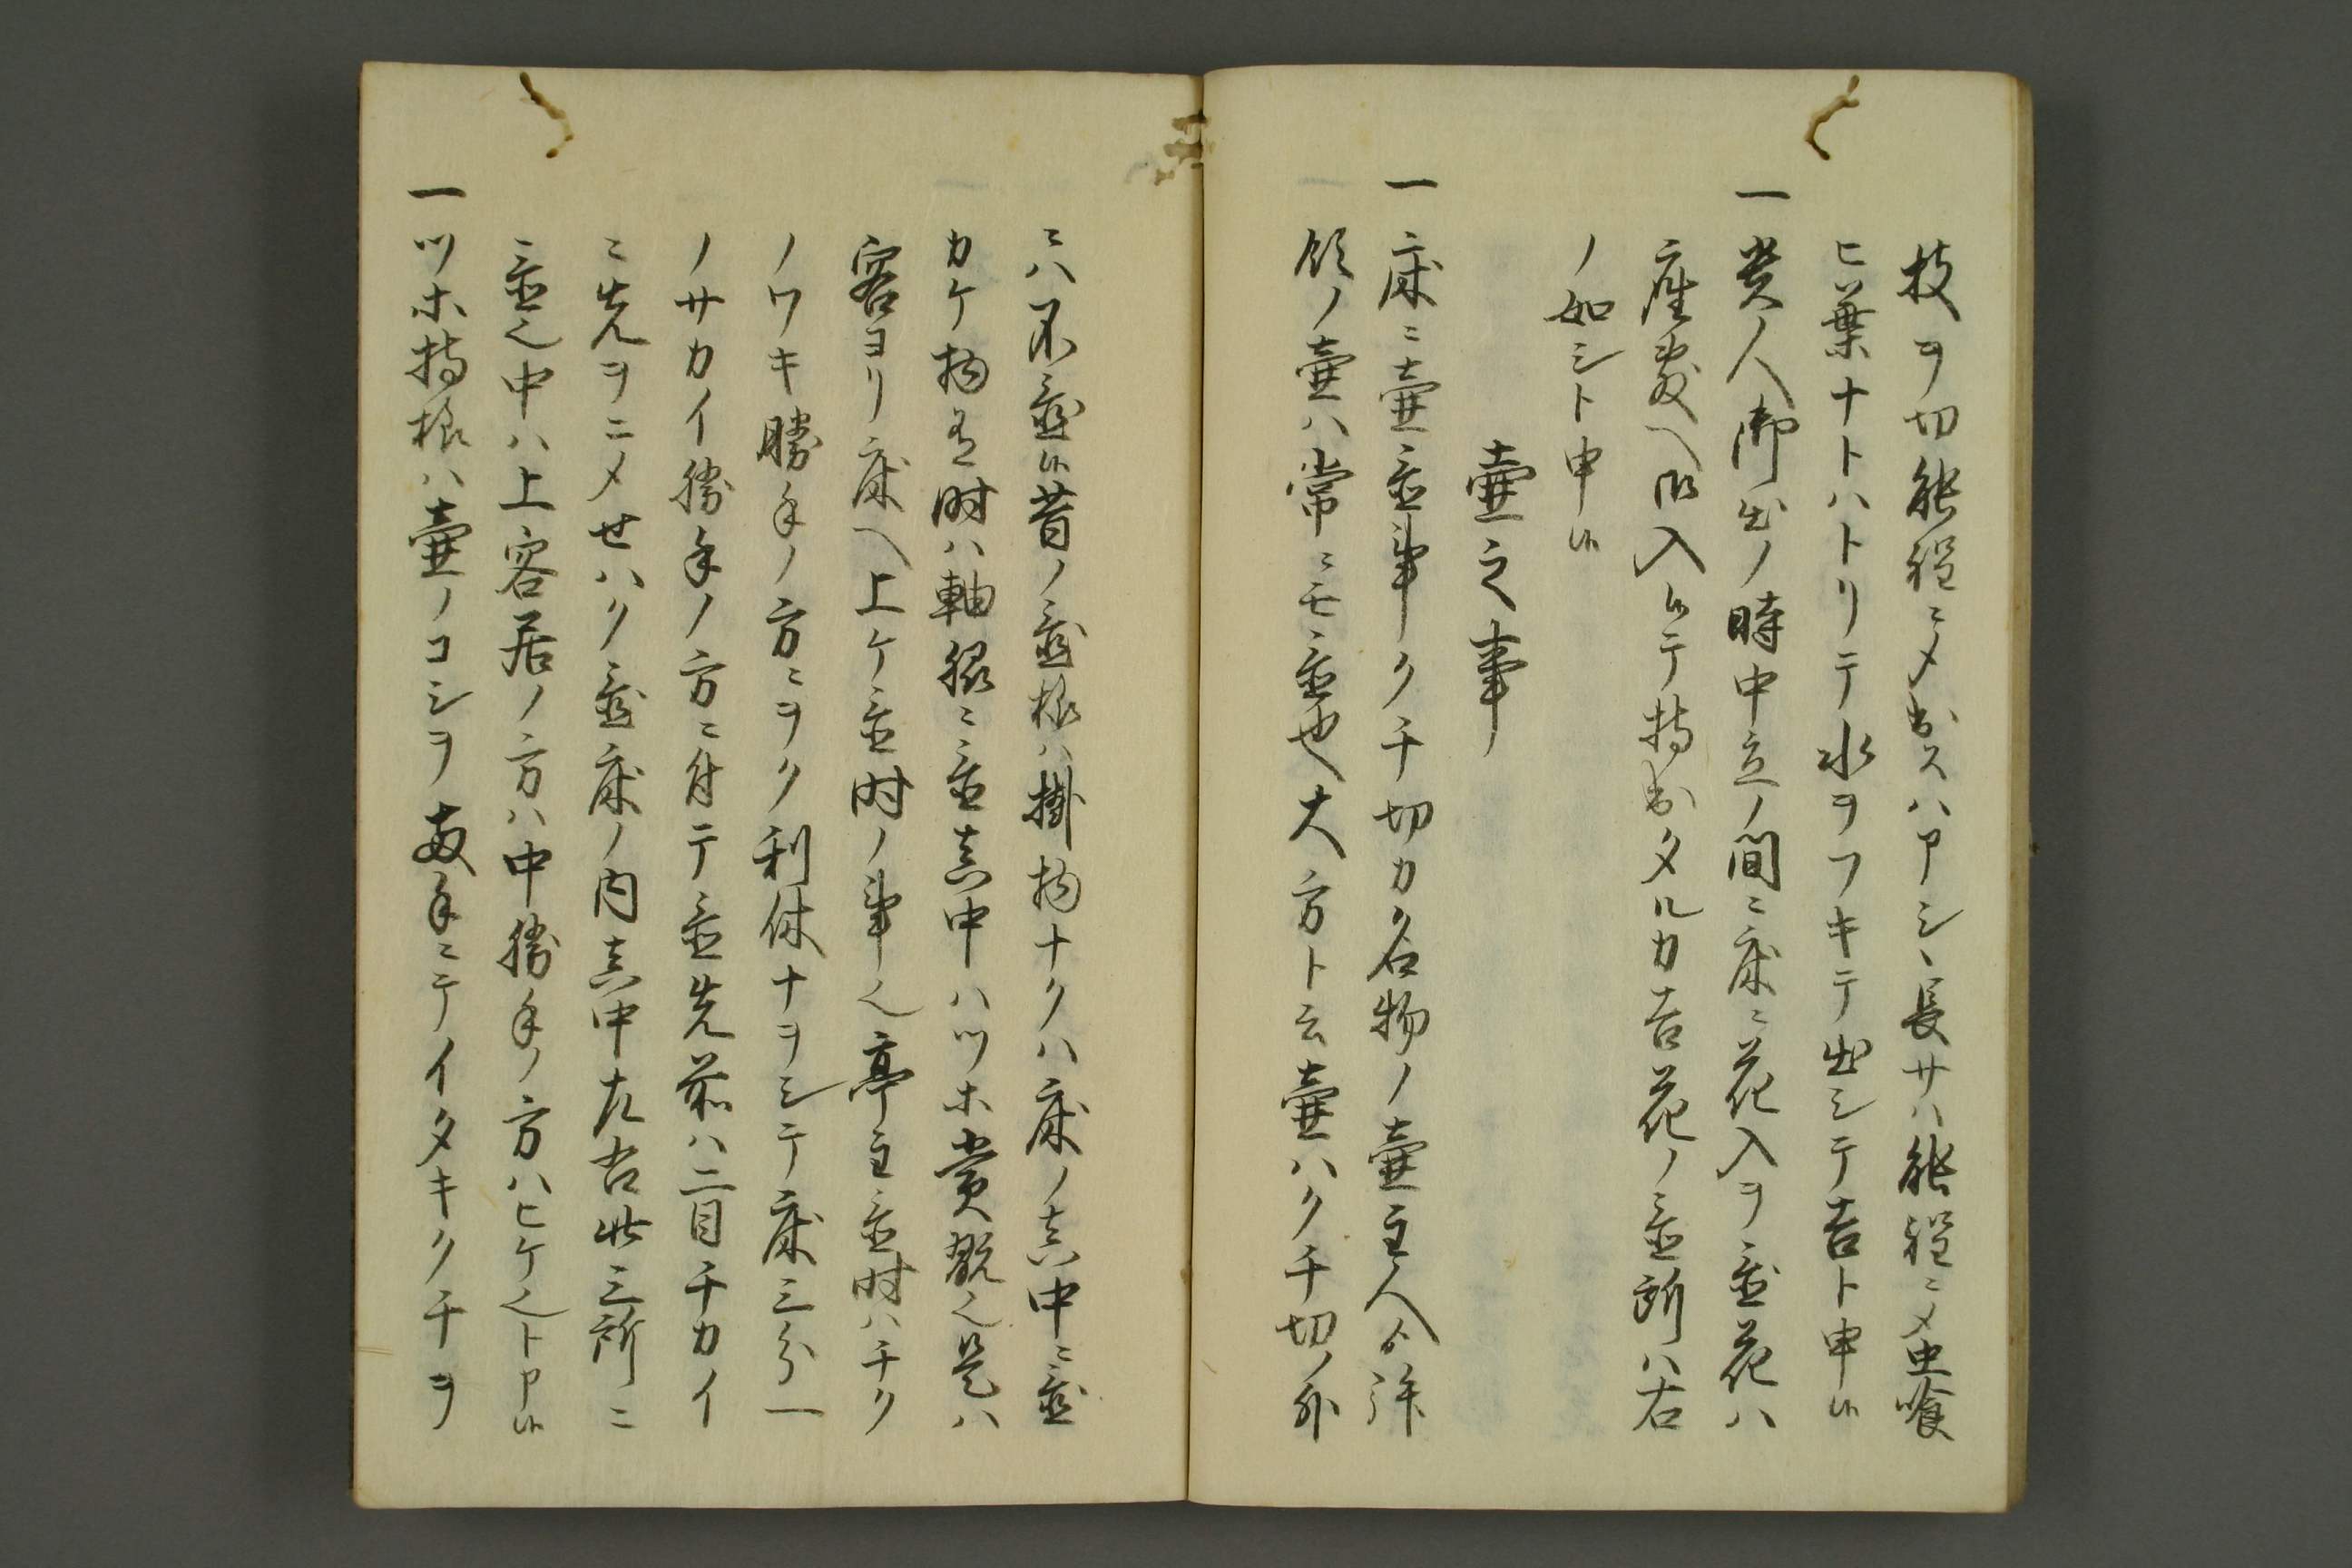 枝ヲ切能程ニメ出スハアシヽ長サハ能程ニメ虫喰
ヒ葉ナトハトリテ水ヲフキテ出シテ吉ト申候
一貴人御出ノ時中立ノ間ニ床ニ花入ヲ置花ハ
座敷ヘ御入候テ持出タルカ吉花ノ置所ハ右
ノ如シト申候
壷之事
一床ニ壷置事クチ切カ名物ノ壷主人ゟ拝
領ノ壷ハ常ニモ置也大方ト云壷ハクチ切ノ外
ニハ不置候昔ノ置様ハ掛物ナクハ床ノ真中ニ置
カケ物有時ハ軸脇ニ置真中ハツホ賞翫也是ハ
客ヨリ床ヘ上ケ置時ノ事也亭主置時ハチク
ノワキ勝手ノ方ニヲク利休ナヲシテ床三分一
ノサカイ勝手ノ方ニ付テ置先前ハ二目チカイ
ニ先ヲニメセハク置床ノ内真中左右此三所ニ
置也中ハ上客居ノ方ハ中勝手ノ方ハヒケ也ト申候
一ツホ持様ハ壷ノコシヲ両手ニテイタキクチヲ